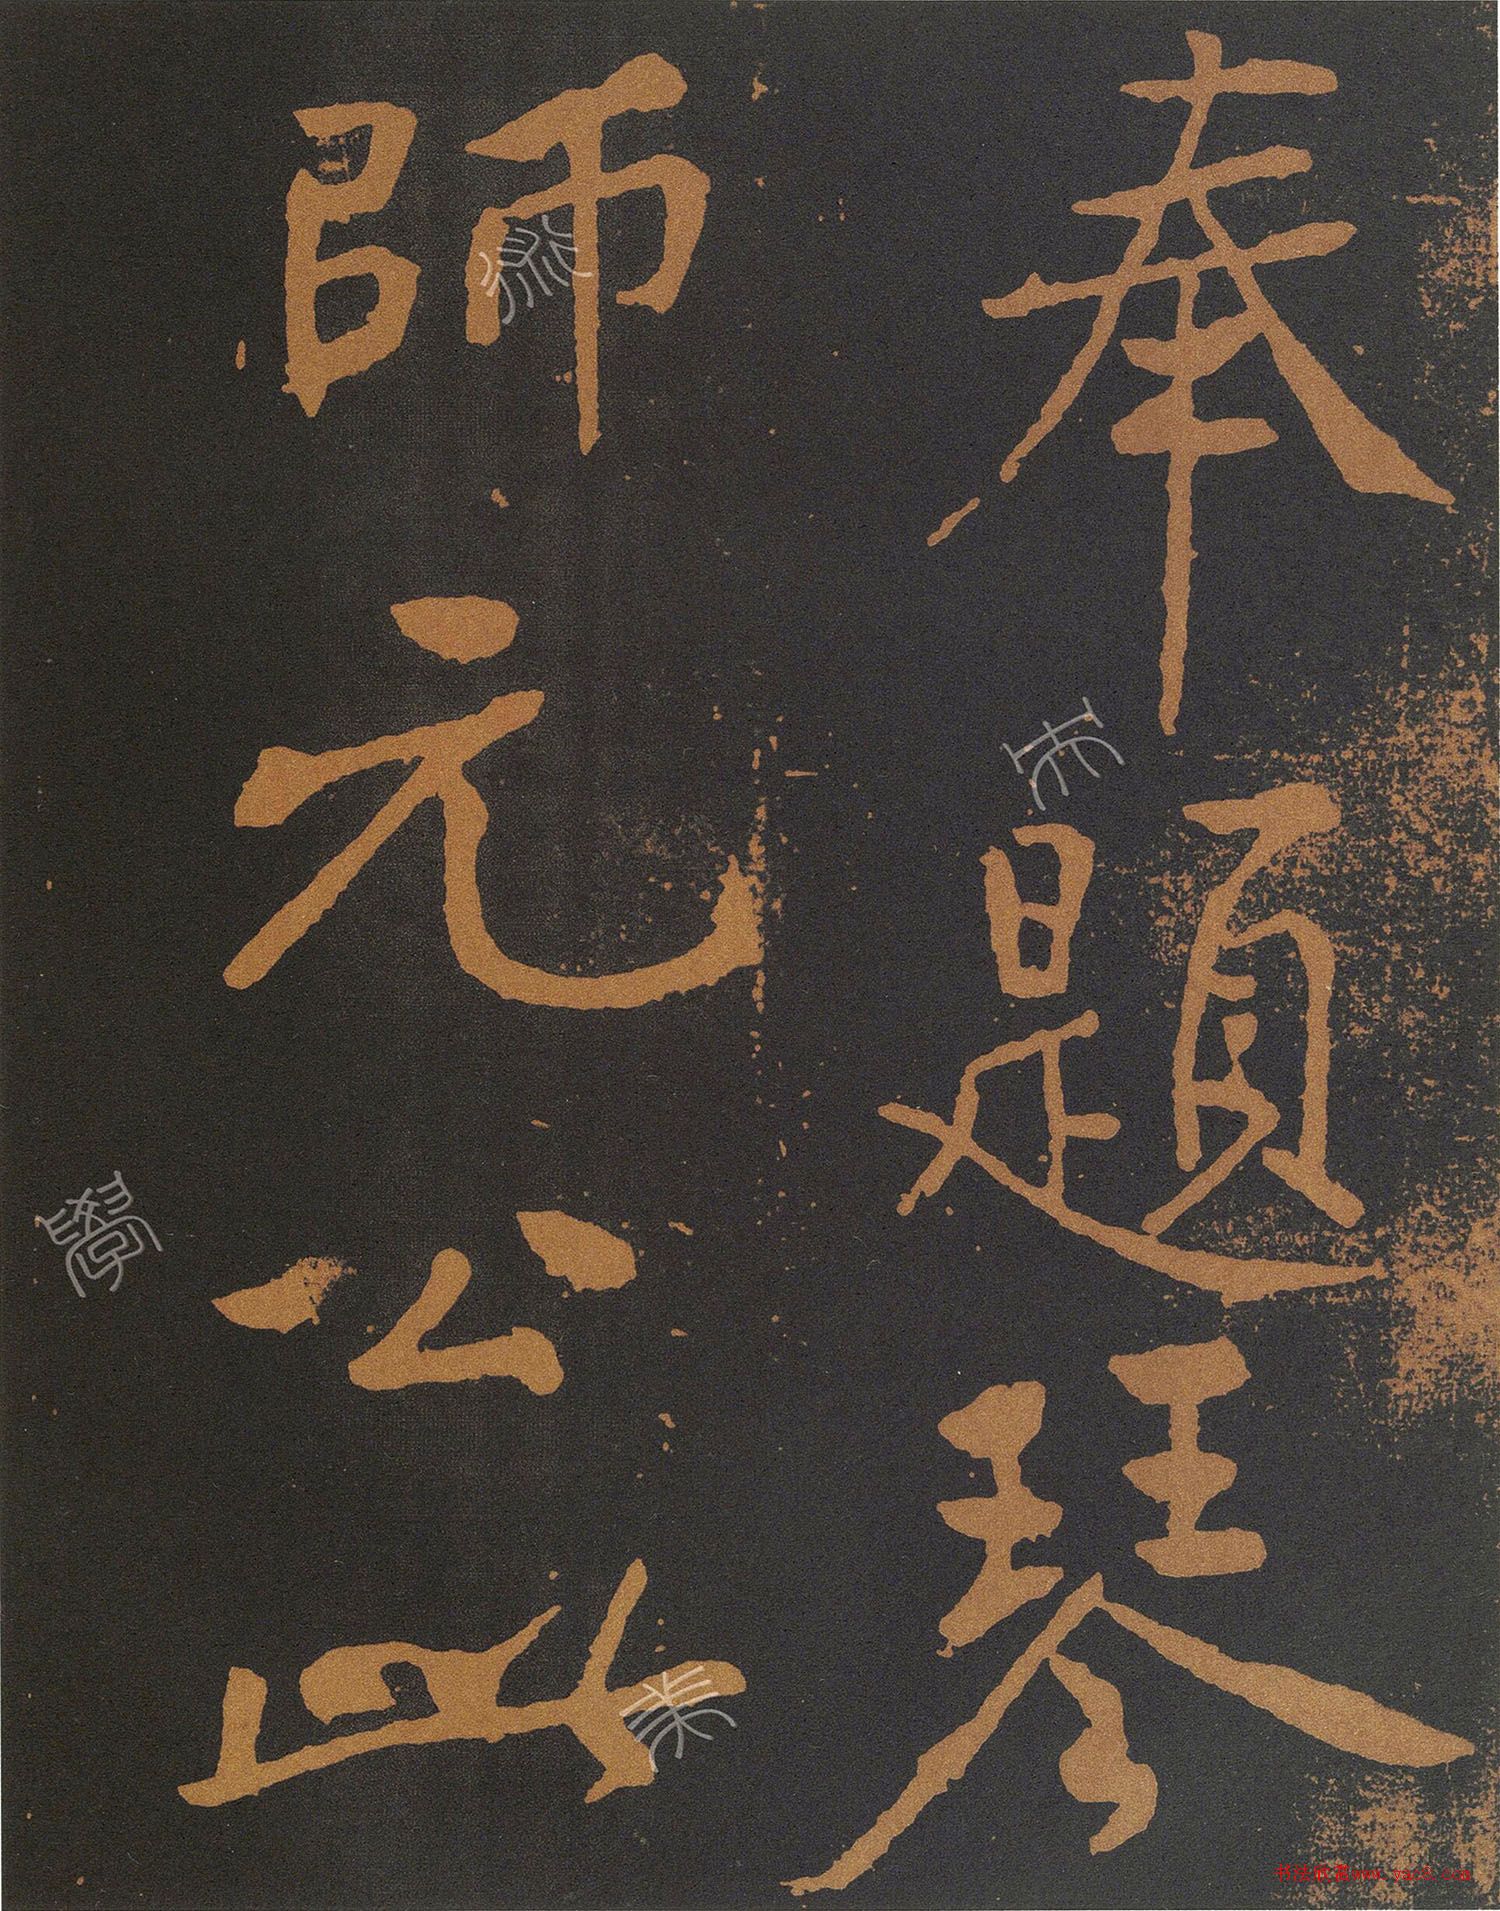 奉題琴
師元公此
书法欣赏www.yac8.com